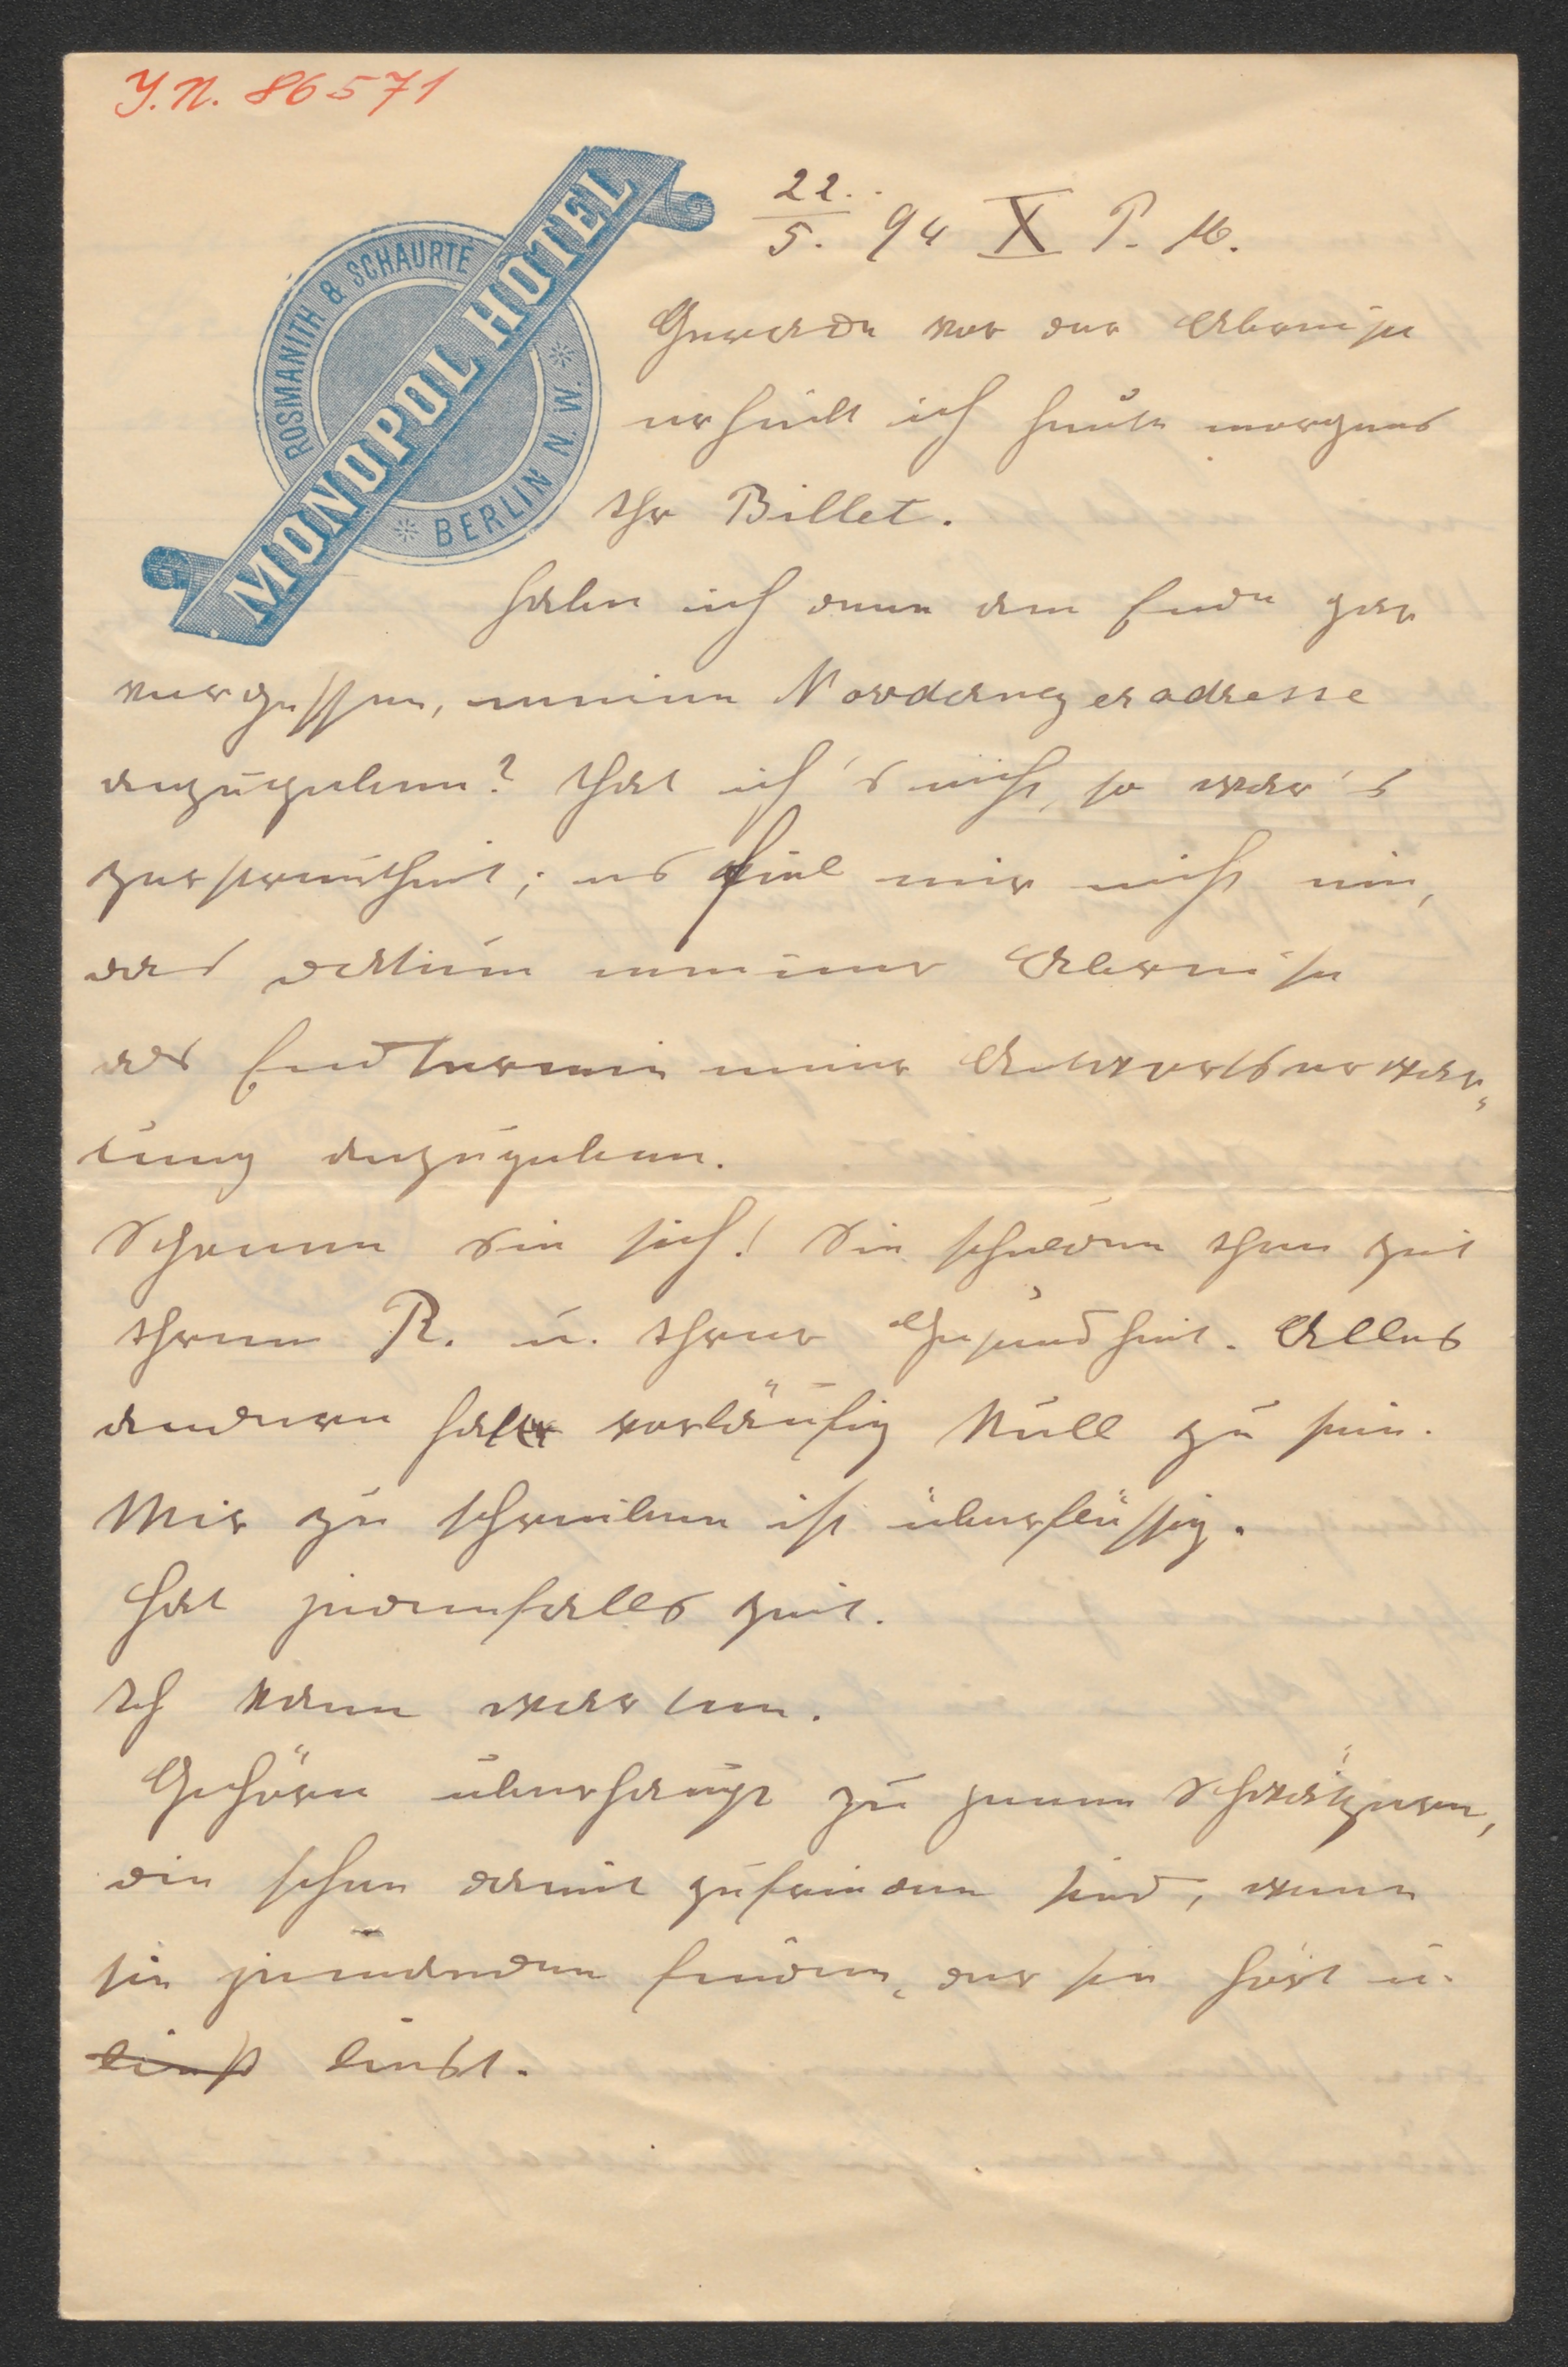 J.N. 86571
ROSMANITH & SCHAURTE
MONOPOL HOTEL
* BERLIN N. W. *
22.
5. 94 X P. M.
Gerade vor der Abreise
erhielt ich heute morgens
Ihr Billet.
Habe ich denn am Ende gar
vergessen, meine Norderneyeradresse
anzugeben? That ich's nicht, so war's
Zerstreutheit; es fiel mir nicht ein,
das Datum meiner Abreise
als Endtermin einer Antwortserwar-
tung anzugeben.
Schonen Sie sich! Sie schulden Ihre Zeit
Ihrem R. u. Ihrer Gesundheit. Alles
andere hat vorläufig Null zu sein.
Mir zu schreiben ist überflüssig.
Hat jedenfalls Zeit.
Ich kann warten.
Gehöre überhaupt zu jenen Schwätzern,
die schon damit zufrieden sind, wenn
sie jemanden finden, der sie hört u.
liest.